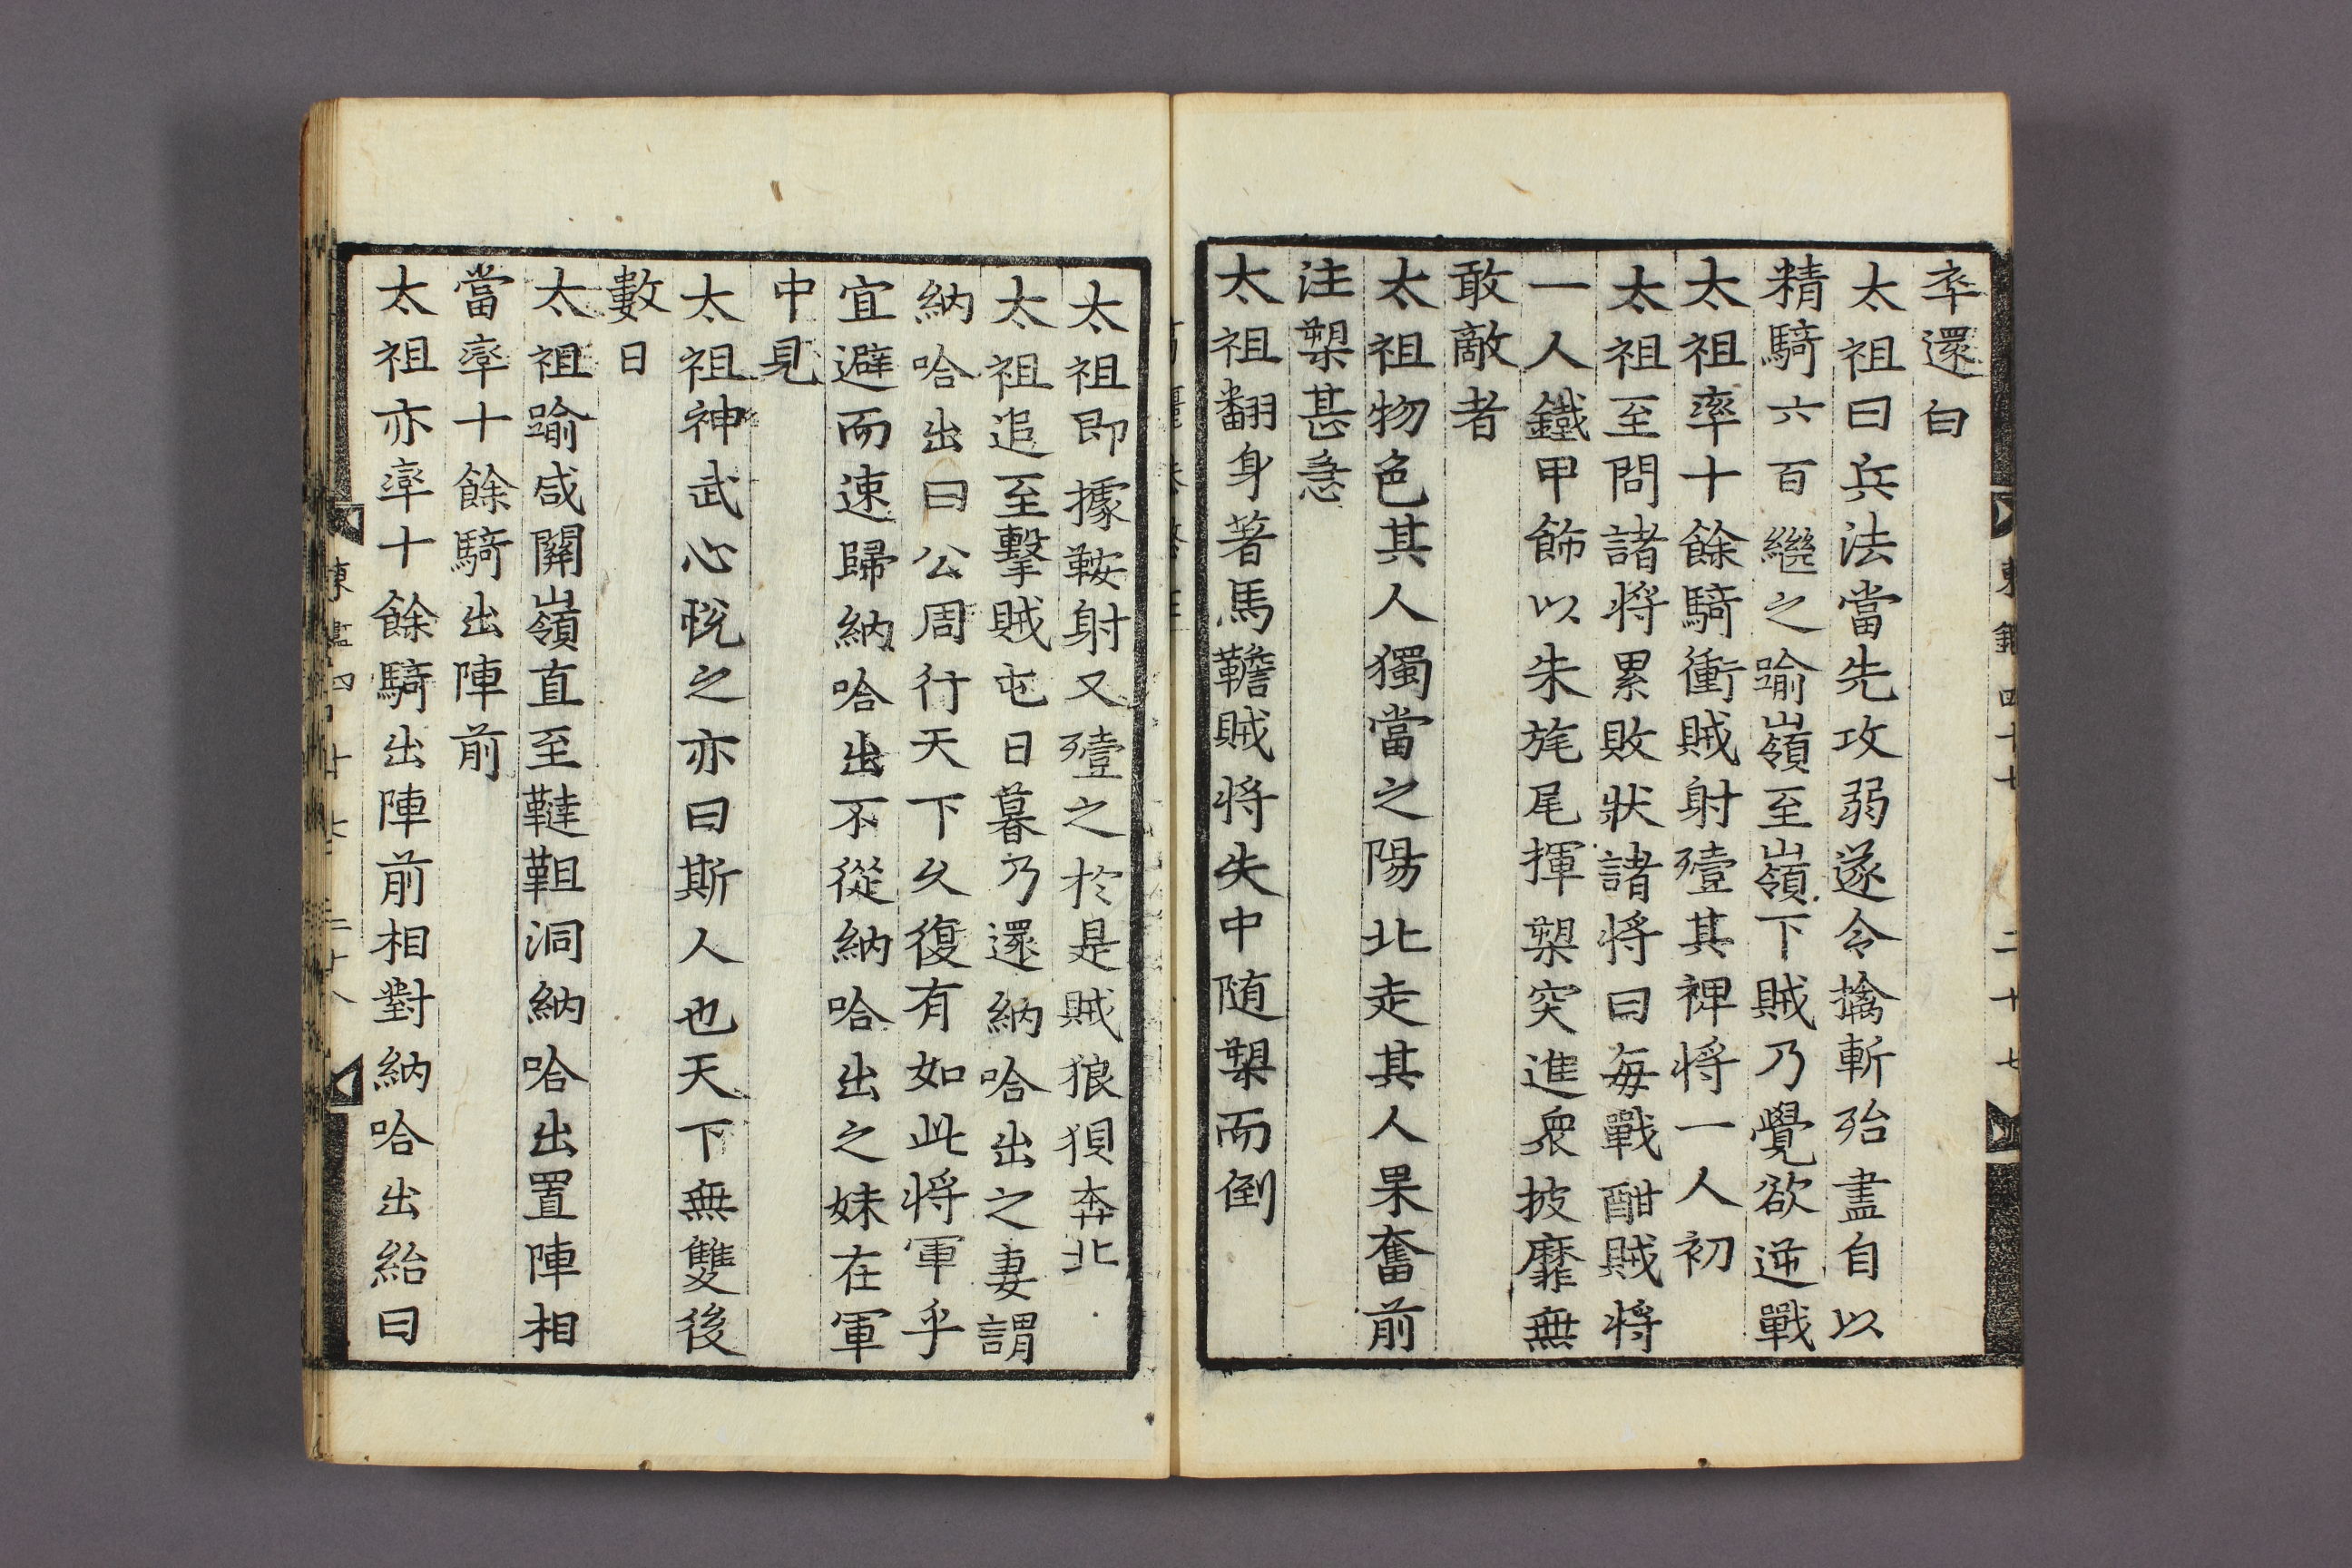 卒還白
太祖曰兵法當先攻弱遂令擒斬殆盡自以
精騎六百繼之踰嶺至嶺下賊乃覺欲逆戰
太祖率十餘騎衝賊射殪其裨將一人初
太祖至問諸將累敗狀諸將曰每戰酣賊將
一人鐵甲飾以朱旄尾揮槊突進衆披靡無
敢敵者
太祖物色其人獨當之陽北走其人果奮前
注槊甚急
太祖翻身著馬韂賊將失中随槊而倒
太祖即據鞍射又殪之於是賊狼狽奔北
太祖追至擊賊屯日暮乃還納哈出之妻謂
納哈出曰公周行天下久復有如此將軍乎
宜避而速歸納哈出不從納哈出之妹在軍
中見
太祖神武心悅之亦曰斯人也天下無雙後
數日
太祖踰咸關嶺直至韃靼洞納哈出置陣相
當率十餘騎出陣前
太祖亦率十餘騎出陣前相對納哈出紿曰
東鑑四十七 二十七